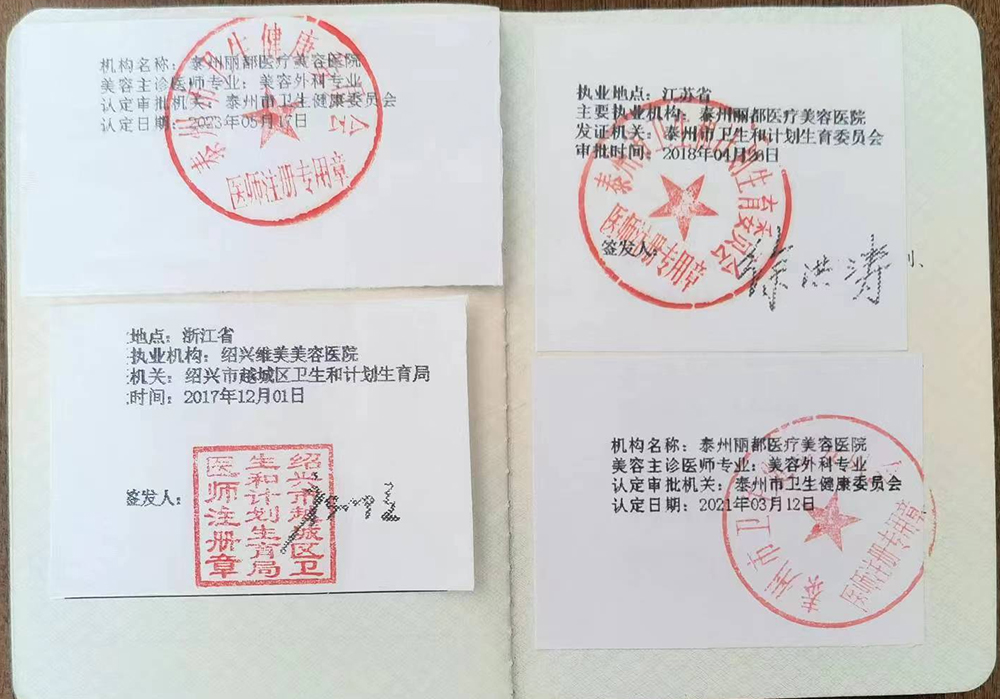 机构名称：泰州丽都医疗美容医院
美容主诊医师专业：美容外科专业
认定审批机关：泰州市卫生健康委员会
认定日期：2023年05月17日
泰州市卫生健康委员会
医师注册专用章
地点：浙江省
执业机构：绍兴维美美容医院
机关：绍兴市越城区卫生和计划生育局
时间：2017年12月01日
签发人：
绍兴市越城区卫
生和计划生育局
医师注册章
执业地点：江苏省
主要执业机构：泰州丽都医疗美容医院
发证机关：泰州市卫生和计划生育委员会
审批时间：2018年04月28日
泰州市卫生和计划生育委员会
医师注册专用章
签发人：
机构名称：泰州丽都医疗美容医院
美容主诊医师专业：美容外科专业
认定审批机关：泰州市卫生健康委员会
认定日期：2021年03月12日
泰州市卫生健康委员会
医师注册专用章